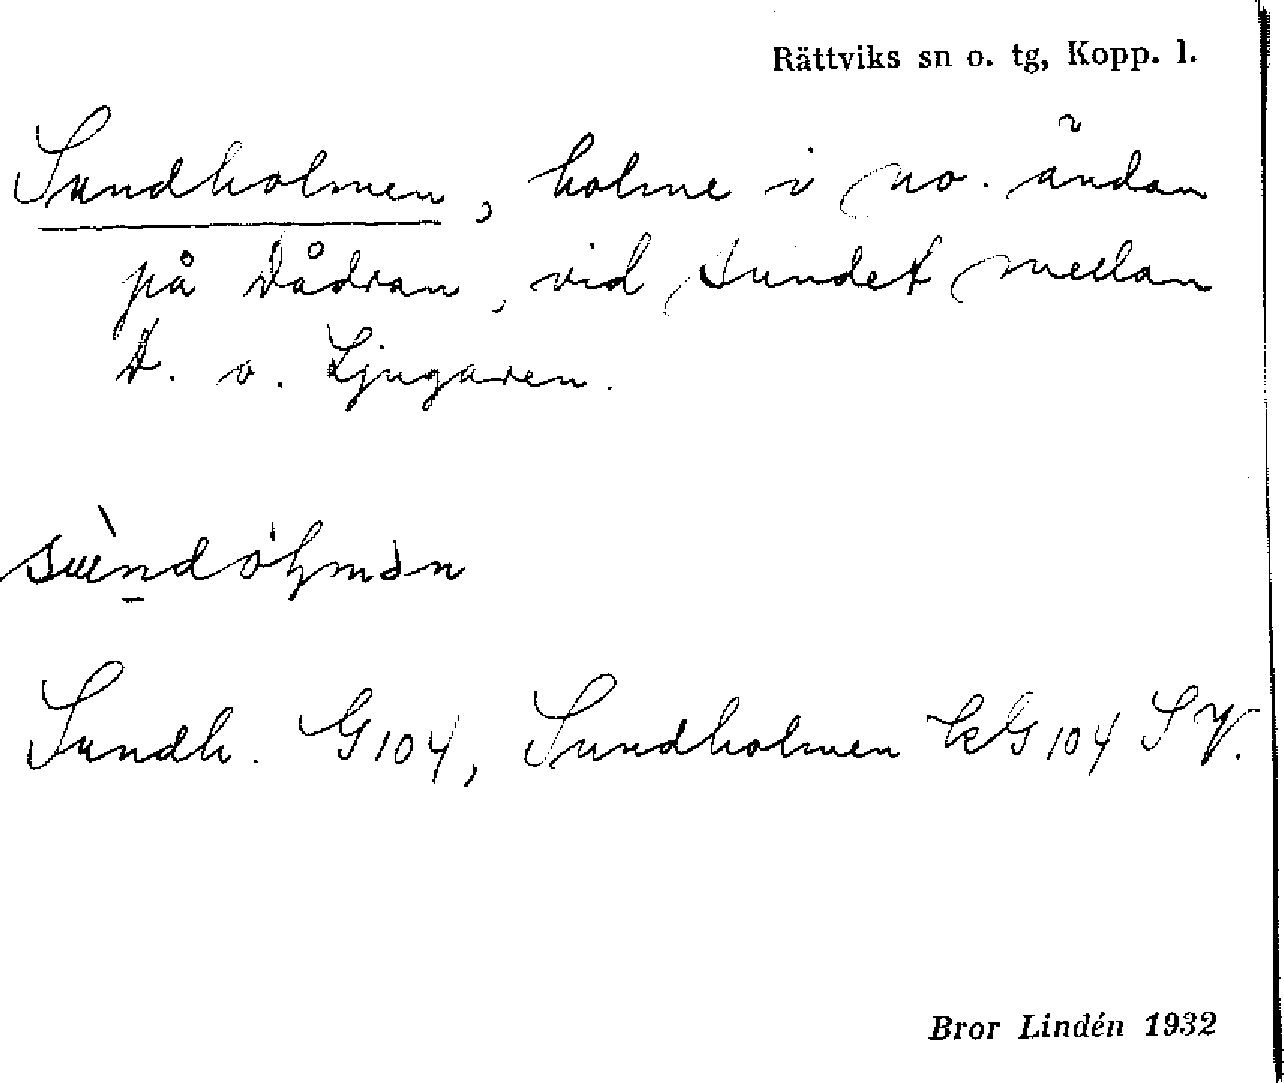 Rättviks sn o. tg, Kopp. l.
Sundholmen, holme i no. ändan
på Dådran, vid sundet mellan
D. o. Ljugaren.
Sundh. G104, Sundholmen kG104 SV.
Bror Lindén 1932